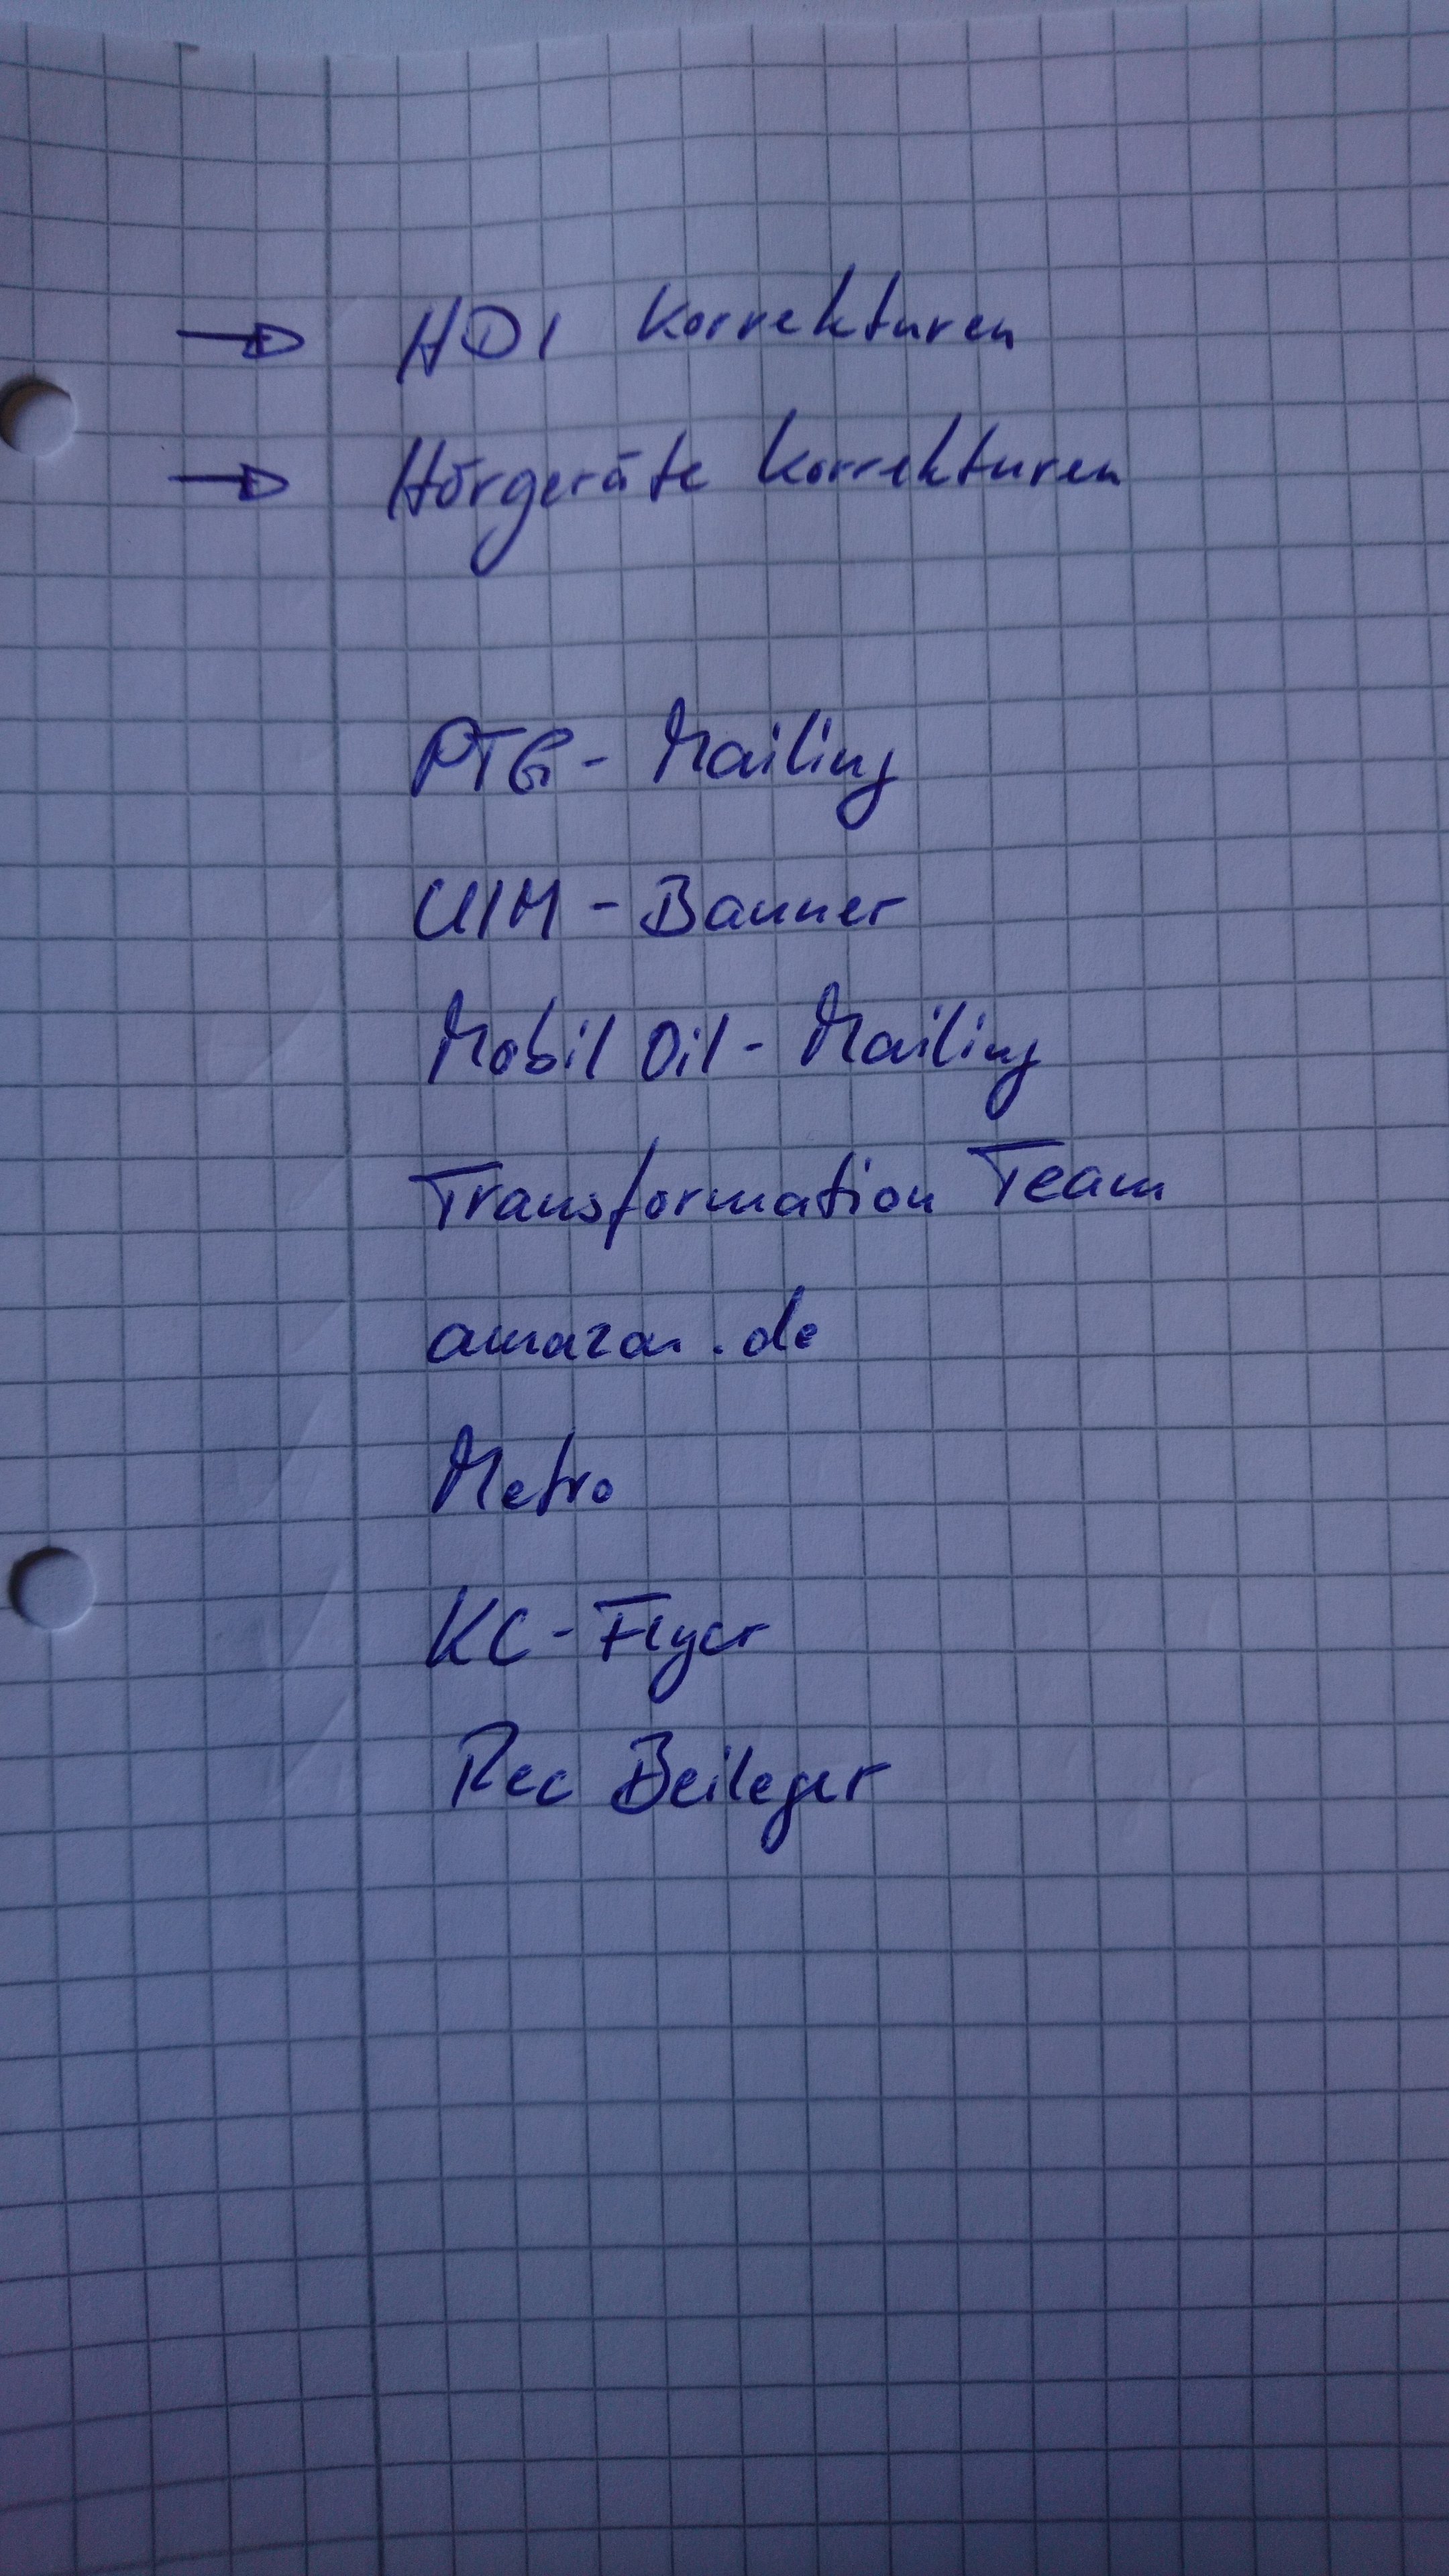 → HDI Korrekturen
→ Hörgeräte Korrekturen
PTG - Mailing
UIM - Banner
Mobil Oil - Mailing
Transformation Team
amazon.de
Metro
KC - Flyer
Rec Beileger